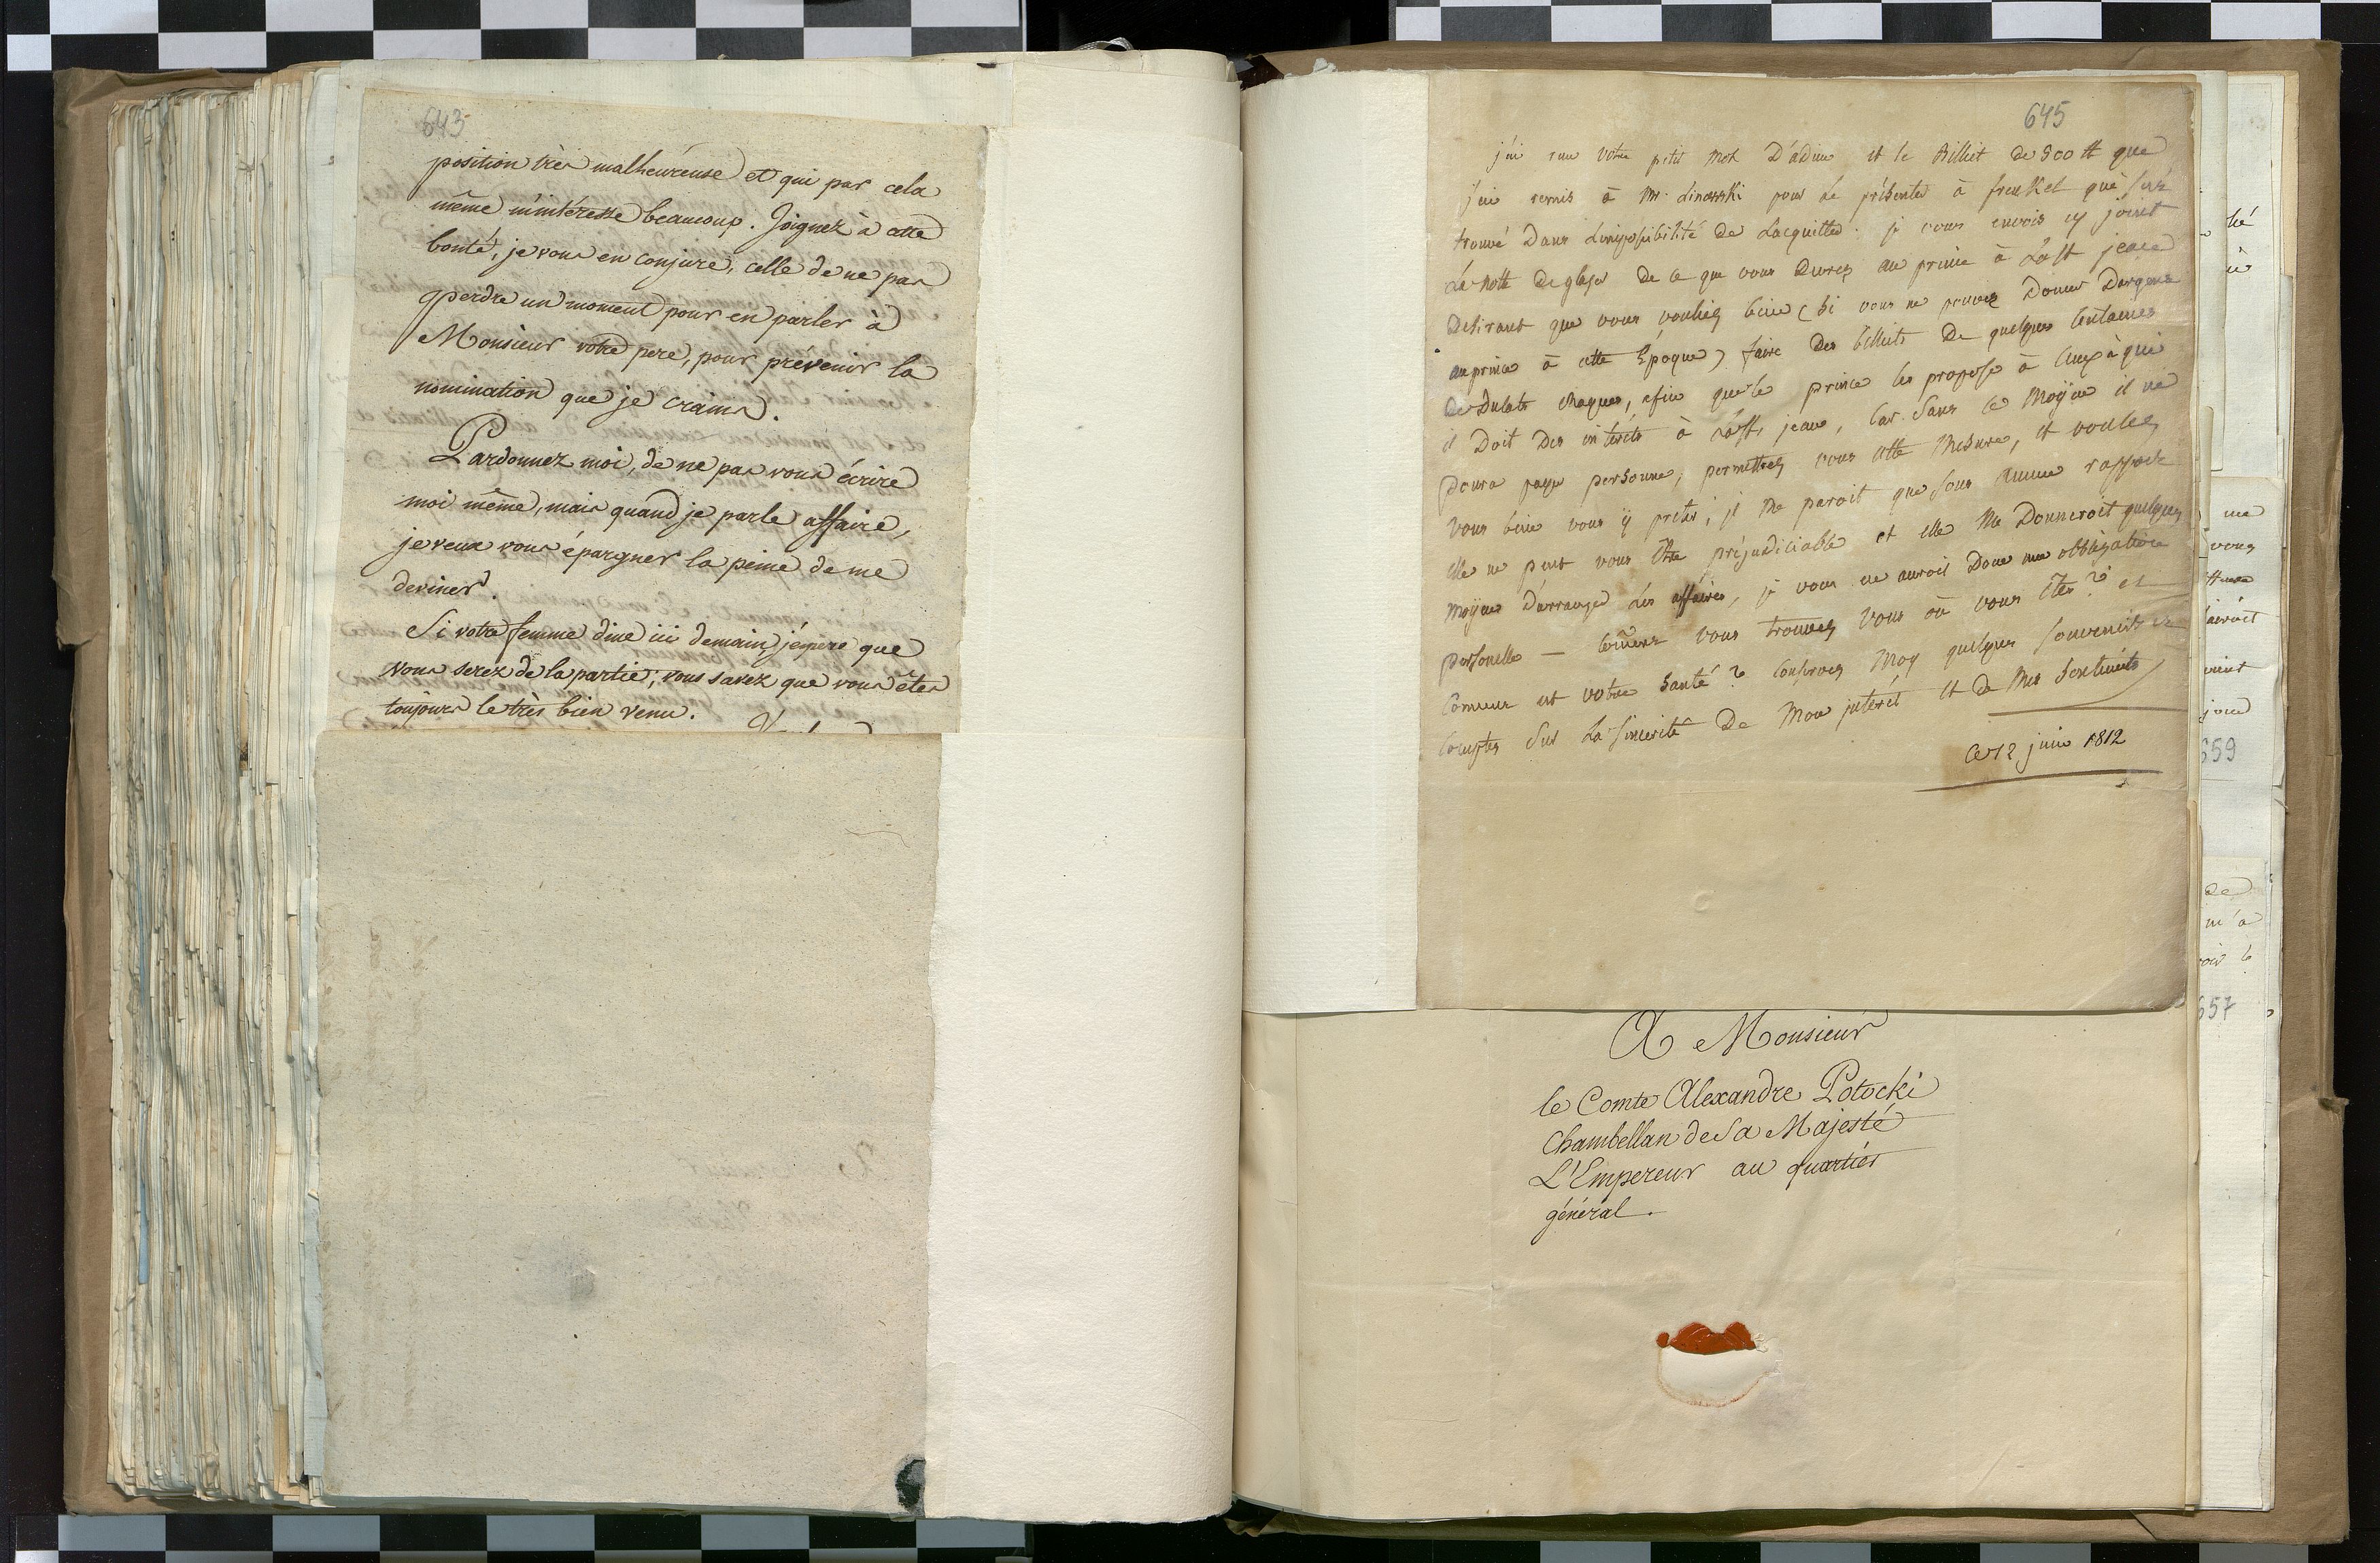 643
position très malheureuse et qui par cela
même m'intéresse beaucoup. Joignez à cette
bonté, je vous en conjure, celle de ne pas
perdre un moment pour en parler à
Monsieur votre pere, pour prévenir la
nomination que je crains.
Pardonnez moi, de ne pas vous écrire
moi même, mais quand je parle affaire,
je veux vous épargner la peine de me
deviner.
Si votre femme dine ici demain, j'éspere que
vous serez de la partie; vous savez que vous êtes
toujours le très bien venu.
645
j'ai votre petit mot D'adieu et le Billiet de que
j'ai remis à Mr. Linowski pour le présenter à frenkel qui s'est
trouvé Dans L'impossibilité de Lacquitter. je vous envois cy joint
La notte de glaser de ce que vous Devez au prince à La St jean
Desirant que vous vouliez bien (si vous ne pouvez Donner D'argent
au prince à cette Epoque) faire Des billiets De quelques Centaines
de Dukats chaques, afin que le prince les propose à Ceux à qui
il Doit Des intérêts à La St. jean, Car sans ce Moÿen il ne
poura payer personne; permettez vous cette Mesure, et voulez
vous bien vous ÿ preter; il me paroit que sous aucun rapport
elle ne peut vous être préjudiciable et elle Me Donneroit quelques
Moÿens D'arranger Les affaires, je vous en aurois Donc une obbligation
personelle — Coment vous trouvez vous où vous êtes? et
Coment est votre Santé? Conservez Moy quelques Souvenirs et
Comptez sur La Sincerité De Mon interêt et De Mes Sentiments
Ce 12 juin 1812
A Monsieur
le Comte Alexandre Potocki
Chambellan de Sa Majesté
L'Empereur au quartier
général.
une
vous
659
de
m'a
657